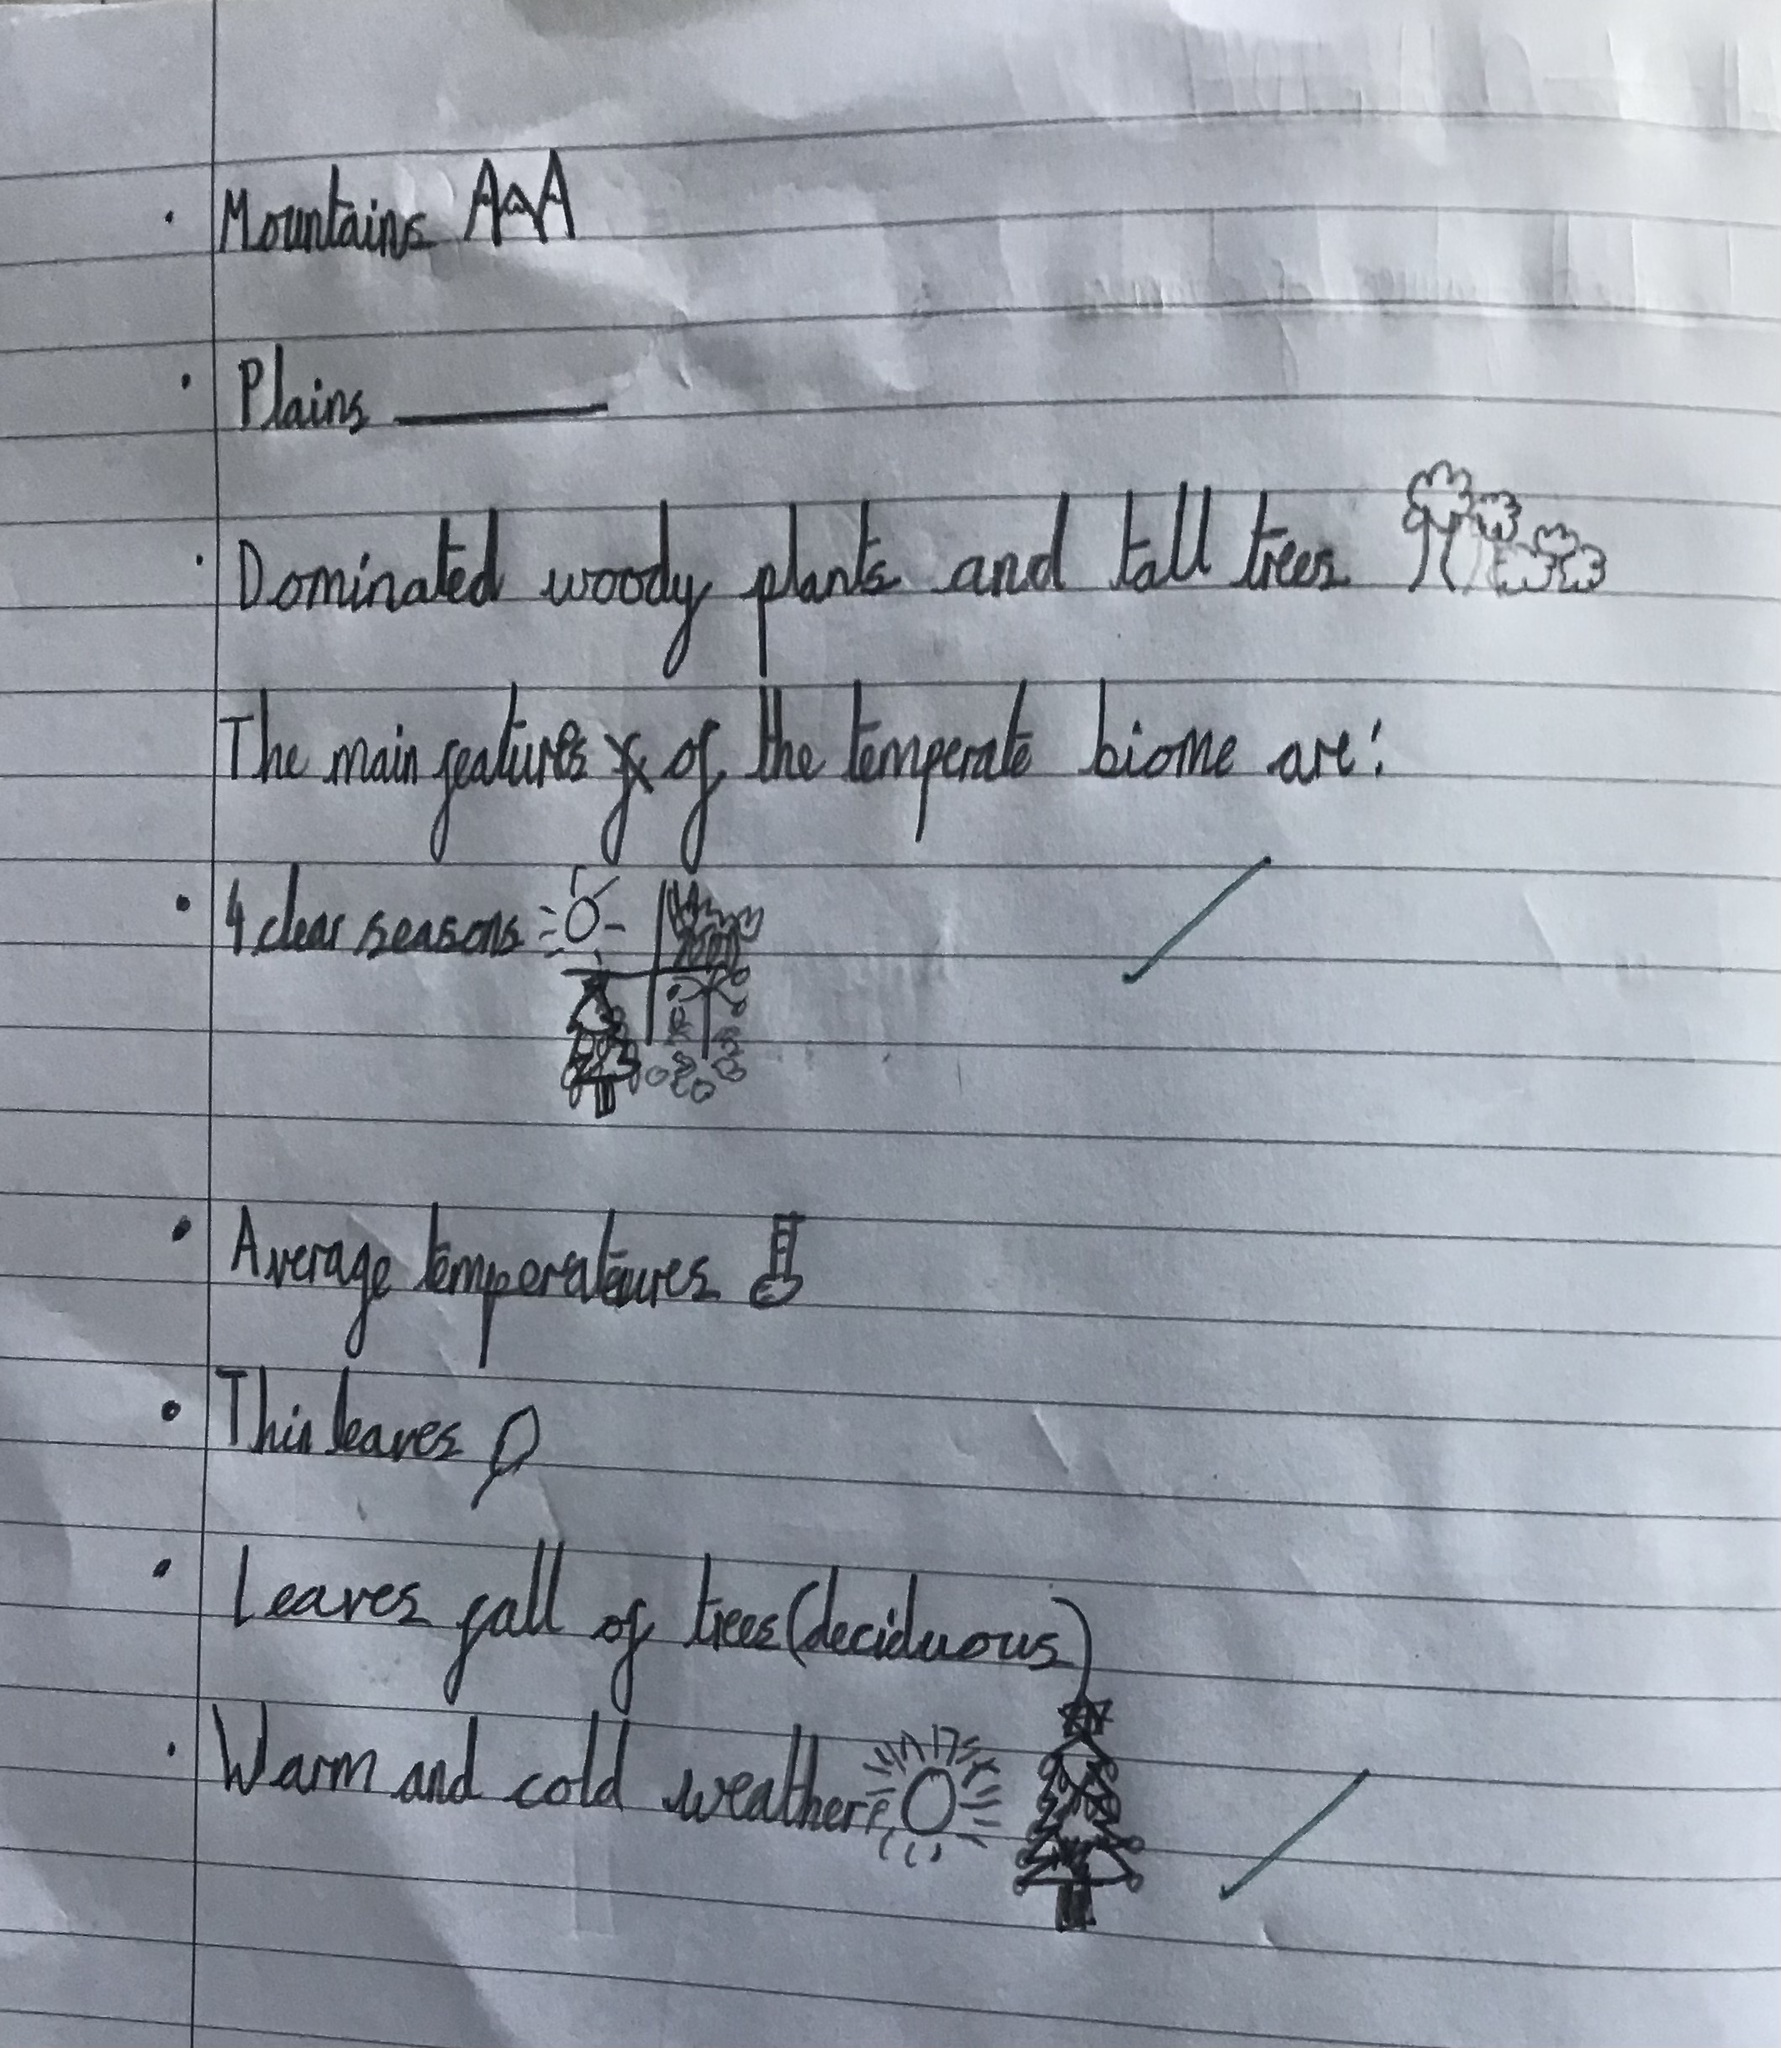 • Mountains
• Plains
• Dominated woody plants and tall trees
The main features of the temperate biome are:
• 4 clear seasons
• Average temperatures
• Thin leaves
• Leaves fall of trees (deciduous)
• Warm and cold weather